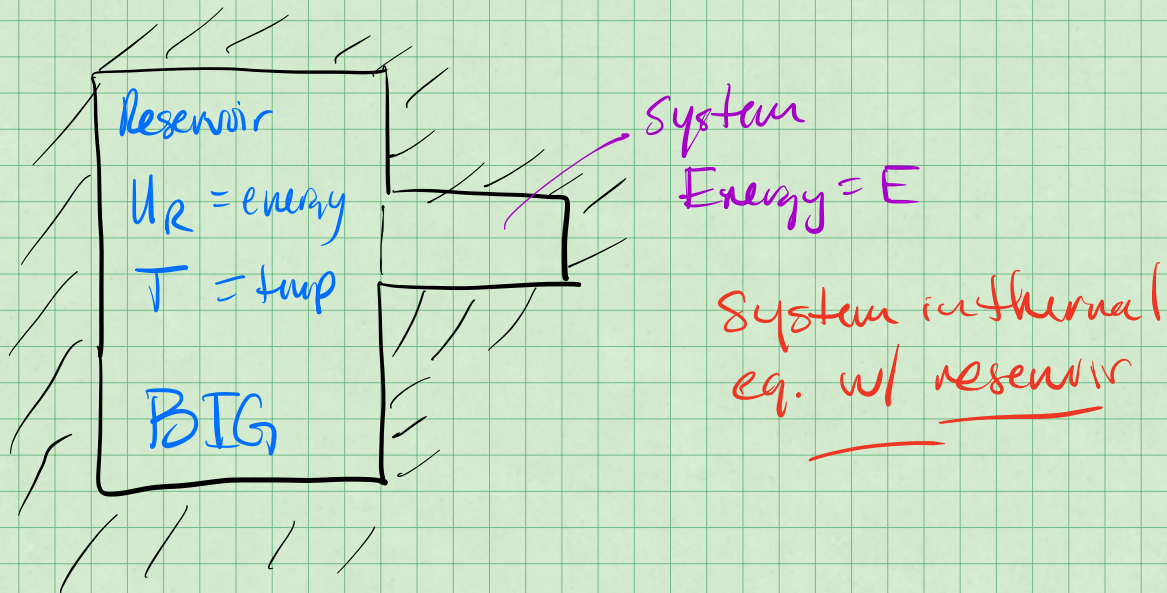 Reservoir
U_R = energy
T = temp
BIG
System
Energy = E
System in thermal
eq. w/ reservoir